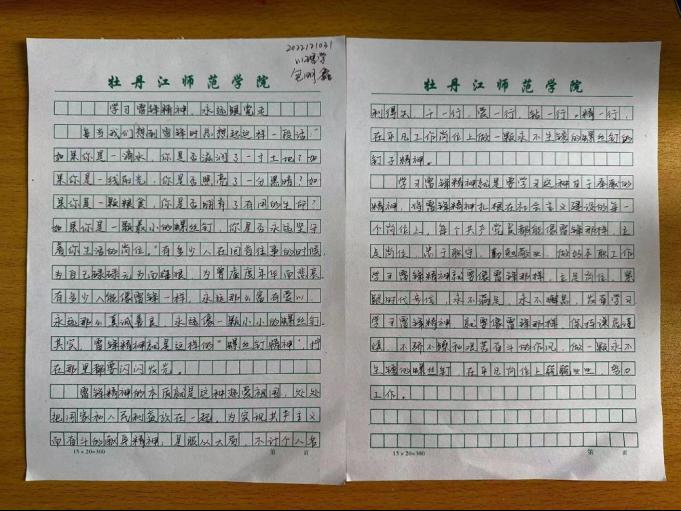 2022121031
心理学
牡丹江师范学院
学习雷锋精神，永远跟党走
每当我们想到雷锋时，总想起这样一段话："
如果你是一滴水，你是否滋润了一寸土地？如
果你是一线阳光，你是否照亮了一分黑暗？如
果你是一颗粮食，你是否哺育了有用的生命？
如果你是一颗最小的螺丝钉，你是否永远坚守
着你生活的岗位。"有多少人在回首往事的时候，
为自己碌碌无为而悔恨，为曾虚度年华而悲哀。
有多少人能像雷锋一样，永远那么富有爱心，
永远那么真诚善良，永远像一颗小小的螺丝钉。
其实，雷锋精神就是这样的"螺丝钉精神"，拧
在那里都要闪闪发光。
雷锋精神的本质就是这种热爱祖国，处处
把国家和人民利益放在一起，为实现共产主义
而奋斗的献身精神，是服从大局，不计个人名
15×20=300
第 页
牡丹江师范学院
利得失，干一行，爱一行，钻一行，精一行，
在平凡工作岗位上做一颗永不生锈的螺丝钉的
钉子精神。
学习雷锋精神就是要学习这种甘于奉献的
精神，将雷锋精神扎根在社会主义建设的每一
个岗位上。每个共产党员都能像雷锋那样，立
足岗位，忠于职守，勤勉敬业，做好本职工作
学习雷锋精神就要像雷锋那样，立足岗位，紧
跟时代步伐，永不满足，永不懈怠，发奋学习
学习雷锋精神就要像雷锋那样，保持谦虚谨
慎，不骄不躁和艰苦奋斗的作风，做一颗永不
生锈的螺丝钉，在平凡岗位上兢兢业业，努力
工作。
15×20=300
第 页